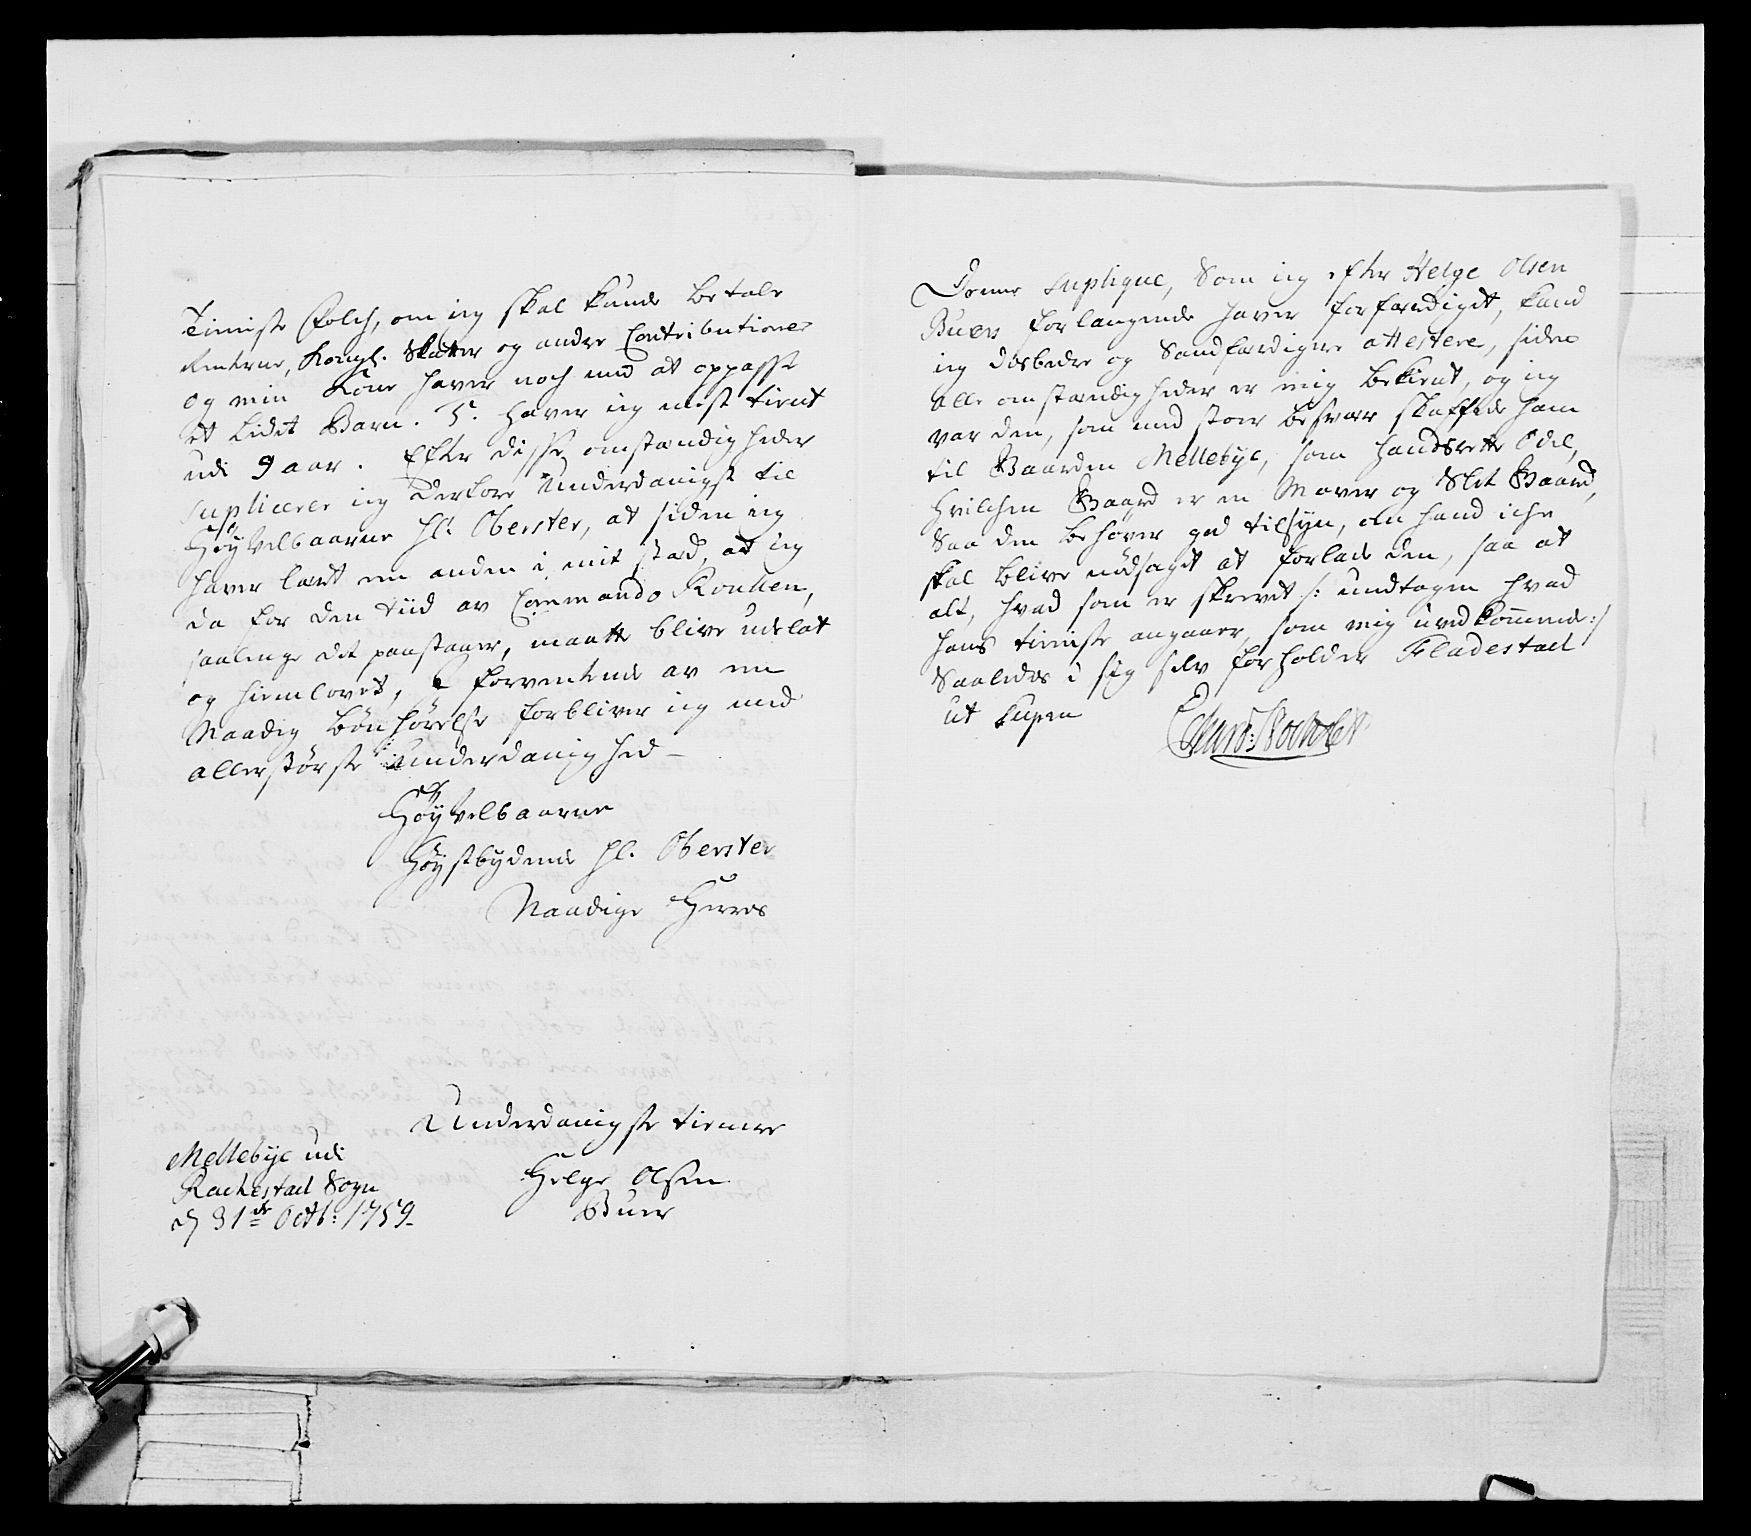 Tieniste Folch, om ieg skal kunde betale
Renterne, Kongl. Skatter og andre Contributioner
og min Kone haver noch med at oppasse
et Lidet Barn. 5te haver ieg mest tient
udi 9 aar. Efter disse omstændigheder
suplicerer ieg derfore Underdanigst til
HøyVelbaarne Hl. Oberster, at siden ieg
haver lært een anden i mit stæd, at ieg
da for den tiid av Commando Roullen,
saalenge det paastaaer, maatte blive udelat
og hiemlovet, forventende av een
Naadig bønhørelse forbliver ieg med
allerstørste Underdanighed –
HøyVelbaarne
Høystbydende Hl. Oberster
Naadige Herres
Underdanigste tienere
Mellebÿe udi
Rackestad Sogn
d 31de Octb: 1759.
Helge Olsen
Buer
Denne Suplique, Som ieg efter Helge Olsen
Buers forlangende haver forfærdiget, kand
ieg desbedre og Sandfærdigere attestere, siden
alle omstændigheder er mig bekient, og ieg
var den, som med stoer besvær skaffede ham
til Gaarden Mellebÿe, som hands rette Odel,
hvilchen Gaard er en Maver og Slet Gaard,
saa den behøver god tilsyn, om hand iche
skal blive nødsaget at forlade den, saa at
alt, hvad som er skrevet /: undtagen hvad
hans tieniste angaaer, som mig uvedkommende :/
Saaledes i sig selv forholder Fladestad
ut supra